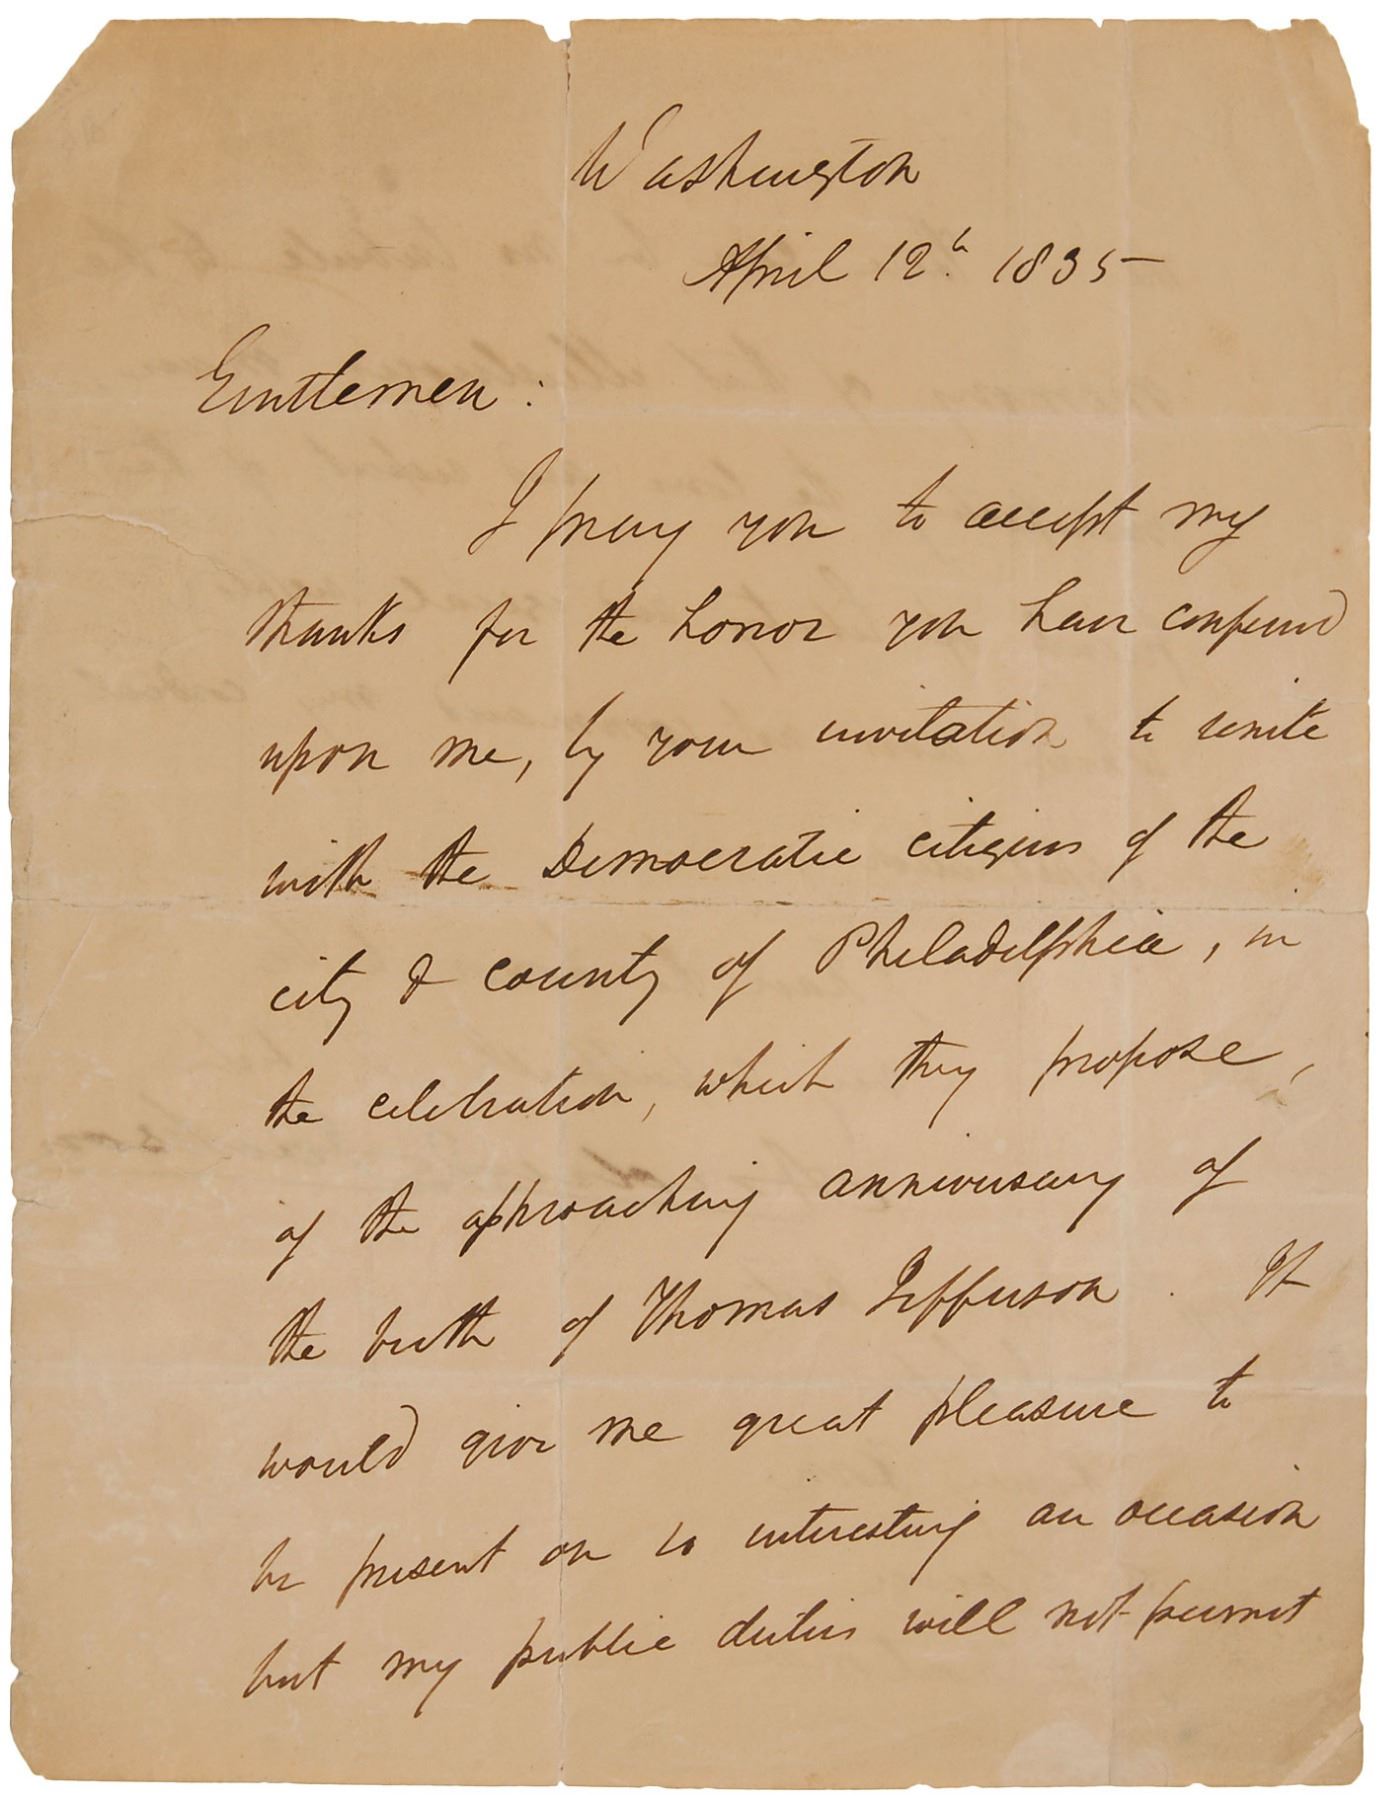 Washington
April 12th 1835
Gentlemen:
I pray you to accept my
thanks for the honor you have conferred
upon me, by your invitation to unite
with the Democratic citizens of the
city & county of Philadelphia, in
the celebration, which they propose,
of the approaching anniversary of
the birth of Thomas Jefferson. It
would give me great pleasure to
be present on so interesting an occasion
but my public duties will not permit